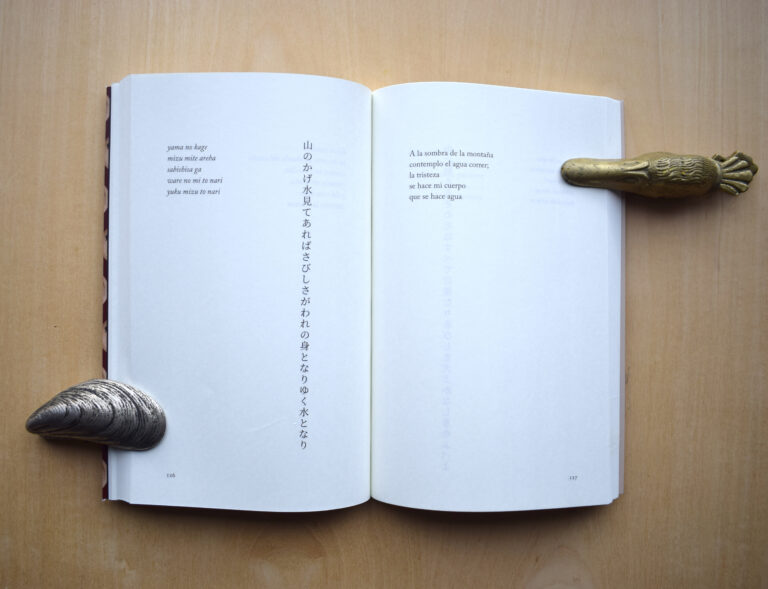 yama no kage
mizu mite areba
sabishisa ga
ware no mi to nari
yuku mizu to nari
山のかげ水見てあればさびしさがわれの身となりゆく水となり
126
A la sombra de la montaña
contemplo el agua correr;
la tristeza
se hace mi cuerpo
que se hace agua
127